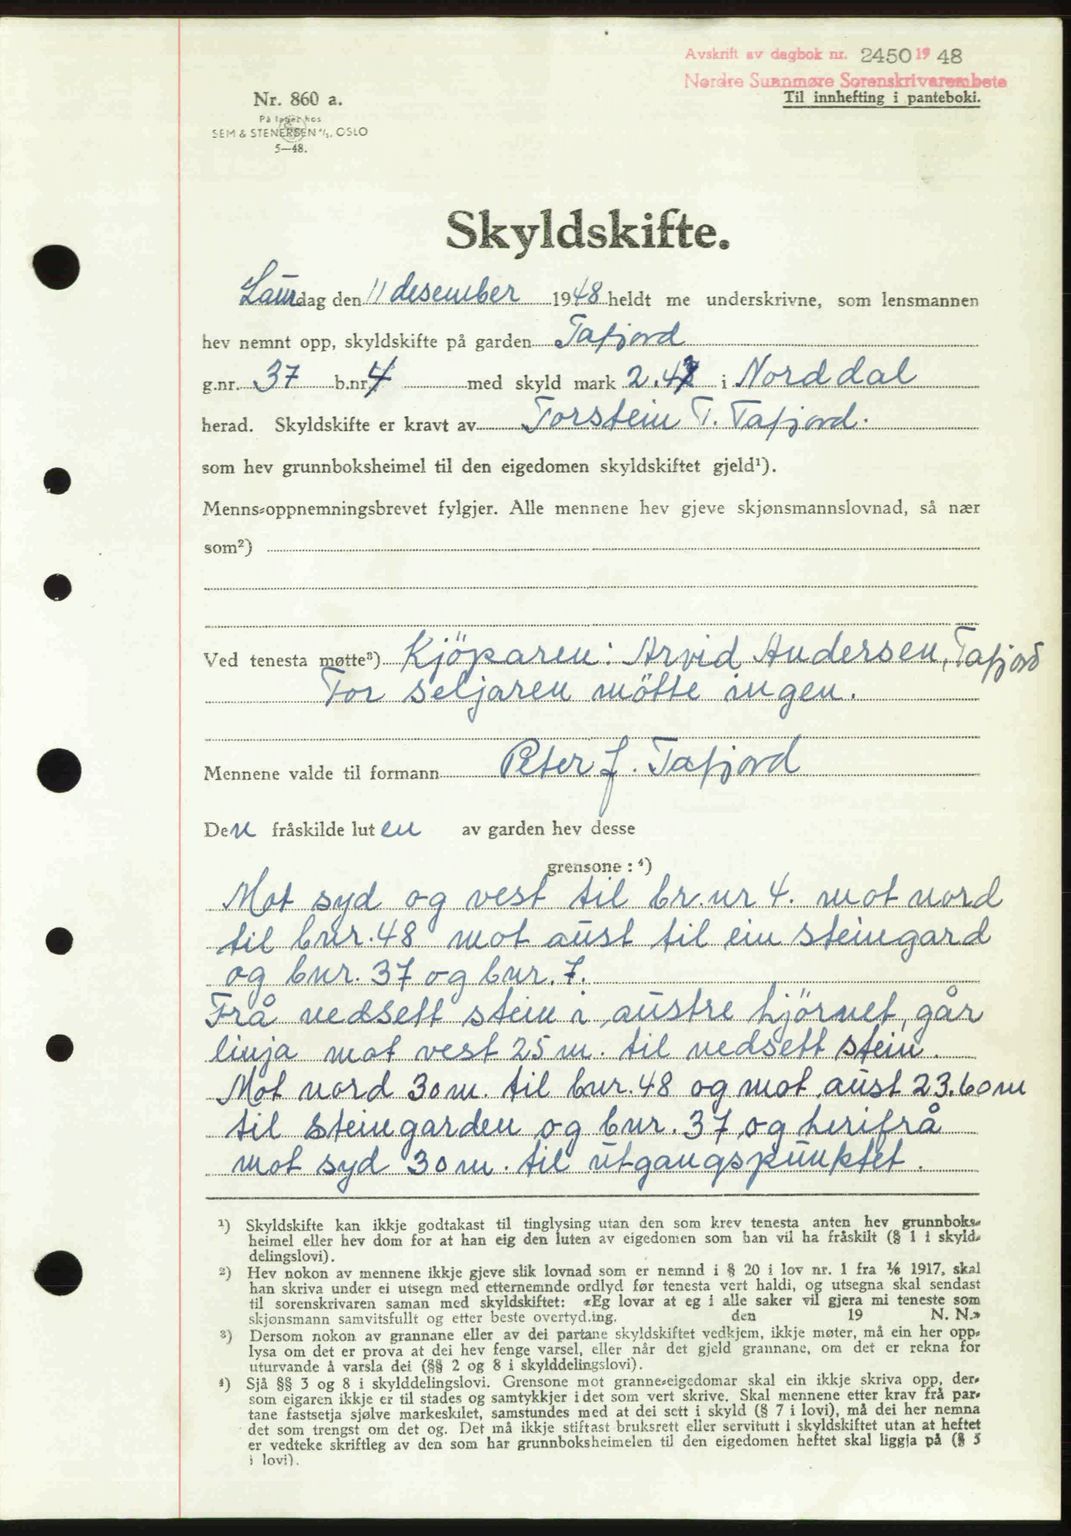 Avskrift av dagbok nr. 2450 1948
Nordre Sunnmøre Sorenskrivarembete
Til innhefting i panteboki.
Nr. 860 a.
På lager hos
SEM & STENERSEN A/S, OSLO
5—48.
Skyldskifte.
Laurdag den 11 desember 1948 heldt me underskrivne, som lensmannen
hev nemnt opp, skyldskifte på garden Tafjord
g.nr. 37 b.nr. 4 med skyld mark 2.42 i Norddal
herad. Skyldskifte er kravt av Torstein T. Tafjord.
som hev grunnboksheimel til den eigedomen skyldskiftet gjeld¹).
Menns-oppnemningsbrevet fylgjer. Alle mennene hev gjeve skjønsmannslovnad, så nær
som²)
Ved tenesta møtte³) Kjöparen: Arvid Andersen, Tafjord
For seljaren mötte ingen.
Mennene valde til formann Peter J. Tafjord
Den fråskilde luten av garden hev desse
grensone: ⁴)
Mot syd og vest til br.nr 4. mot nord
til bnr. 48 mot aust til ein steingard
og bnr. 37 og bnr. 7.
Frå nedsett stein i austre hjörnet, går
linja mot vest 25 m. til nedsett stein.
Mot nord 30 m. til bnr. 48 og mot aust 23.60 m
til steingarden og bnr. 37 og herifrå
mot syd 30 m. til utgangspunktet.
¹) Skyldskifte kan ikkje godtakast til tinglysing utan den som krev tenesta anten hev grunnboks-
heimel eller hev dom for at han eig den luten av eigedomen som han vil ha fråskilt (§ 1 i skyld-
delingslovi).
²) Hev nokon av mennene ikkje gjeve slik lovnad som er nemnd i § 20 i lov nr. 1 fra 1/6 1917, skal
han skriva under ei utsegn med etternemnde ordlyd før tenesta vert haldi, og utsegna skal sendast
til sorenskrivaren saman med skyldskiftet: «Eg lovar at eg i alle saker vil gjera mi teneste som
skjønsmann samvitsfullt og etter beste overtyding. den 19 N. N.»
³) Dersom nokon av grannane eller av dei partane skyldskiftet vedkjem, ikkje møter, må ein her opp-
lysa om det er prova at dei hev fenge varsel, eller når det gjeld grannane, om det er rekna for
uturvande å varsla dei (§§ 2 og 8 i skylddelingslovi).
⁴) Sjå §§ 3 og 8 i skylddelingslovi. Grensone mot granne-eigedomar skal ein ikkje skriva opp, der-
som eigaren ikkje er til stades og samtykkjer i det som vert skrive. Skal mennene etter krav frå par-
tane fastsetja sjølve markeskilet, samstundes med at dei sett i skyld (§ 7 i lovi), må dei her nemna
det som trengst om det og. Det må ikkje stiftast bruksrett eller servitutt i skyldskiftet utan at heftet
er vedteke skriftleg av den som har grunnboksheimelen til den eigedomen heftet skal liggja på (§ 5
i lovi).